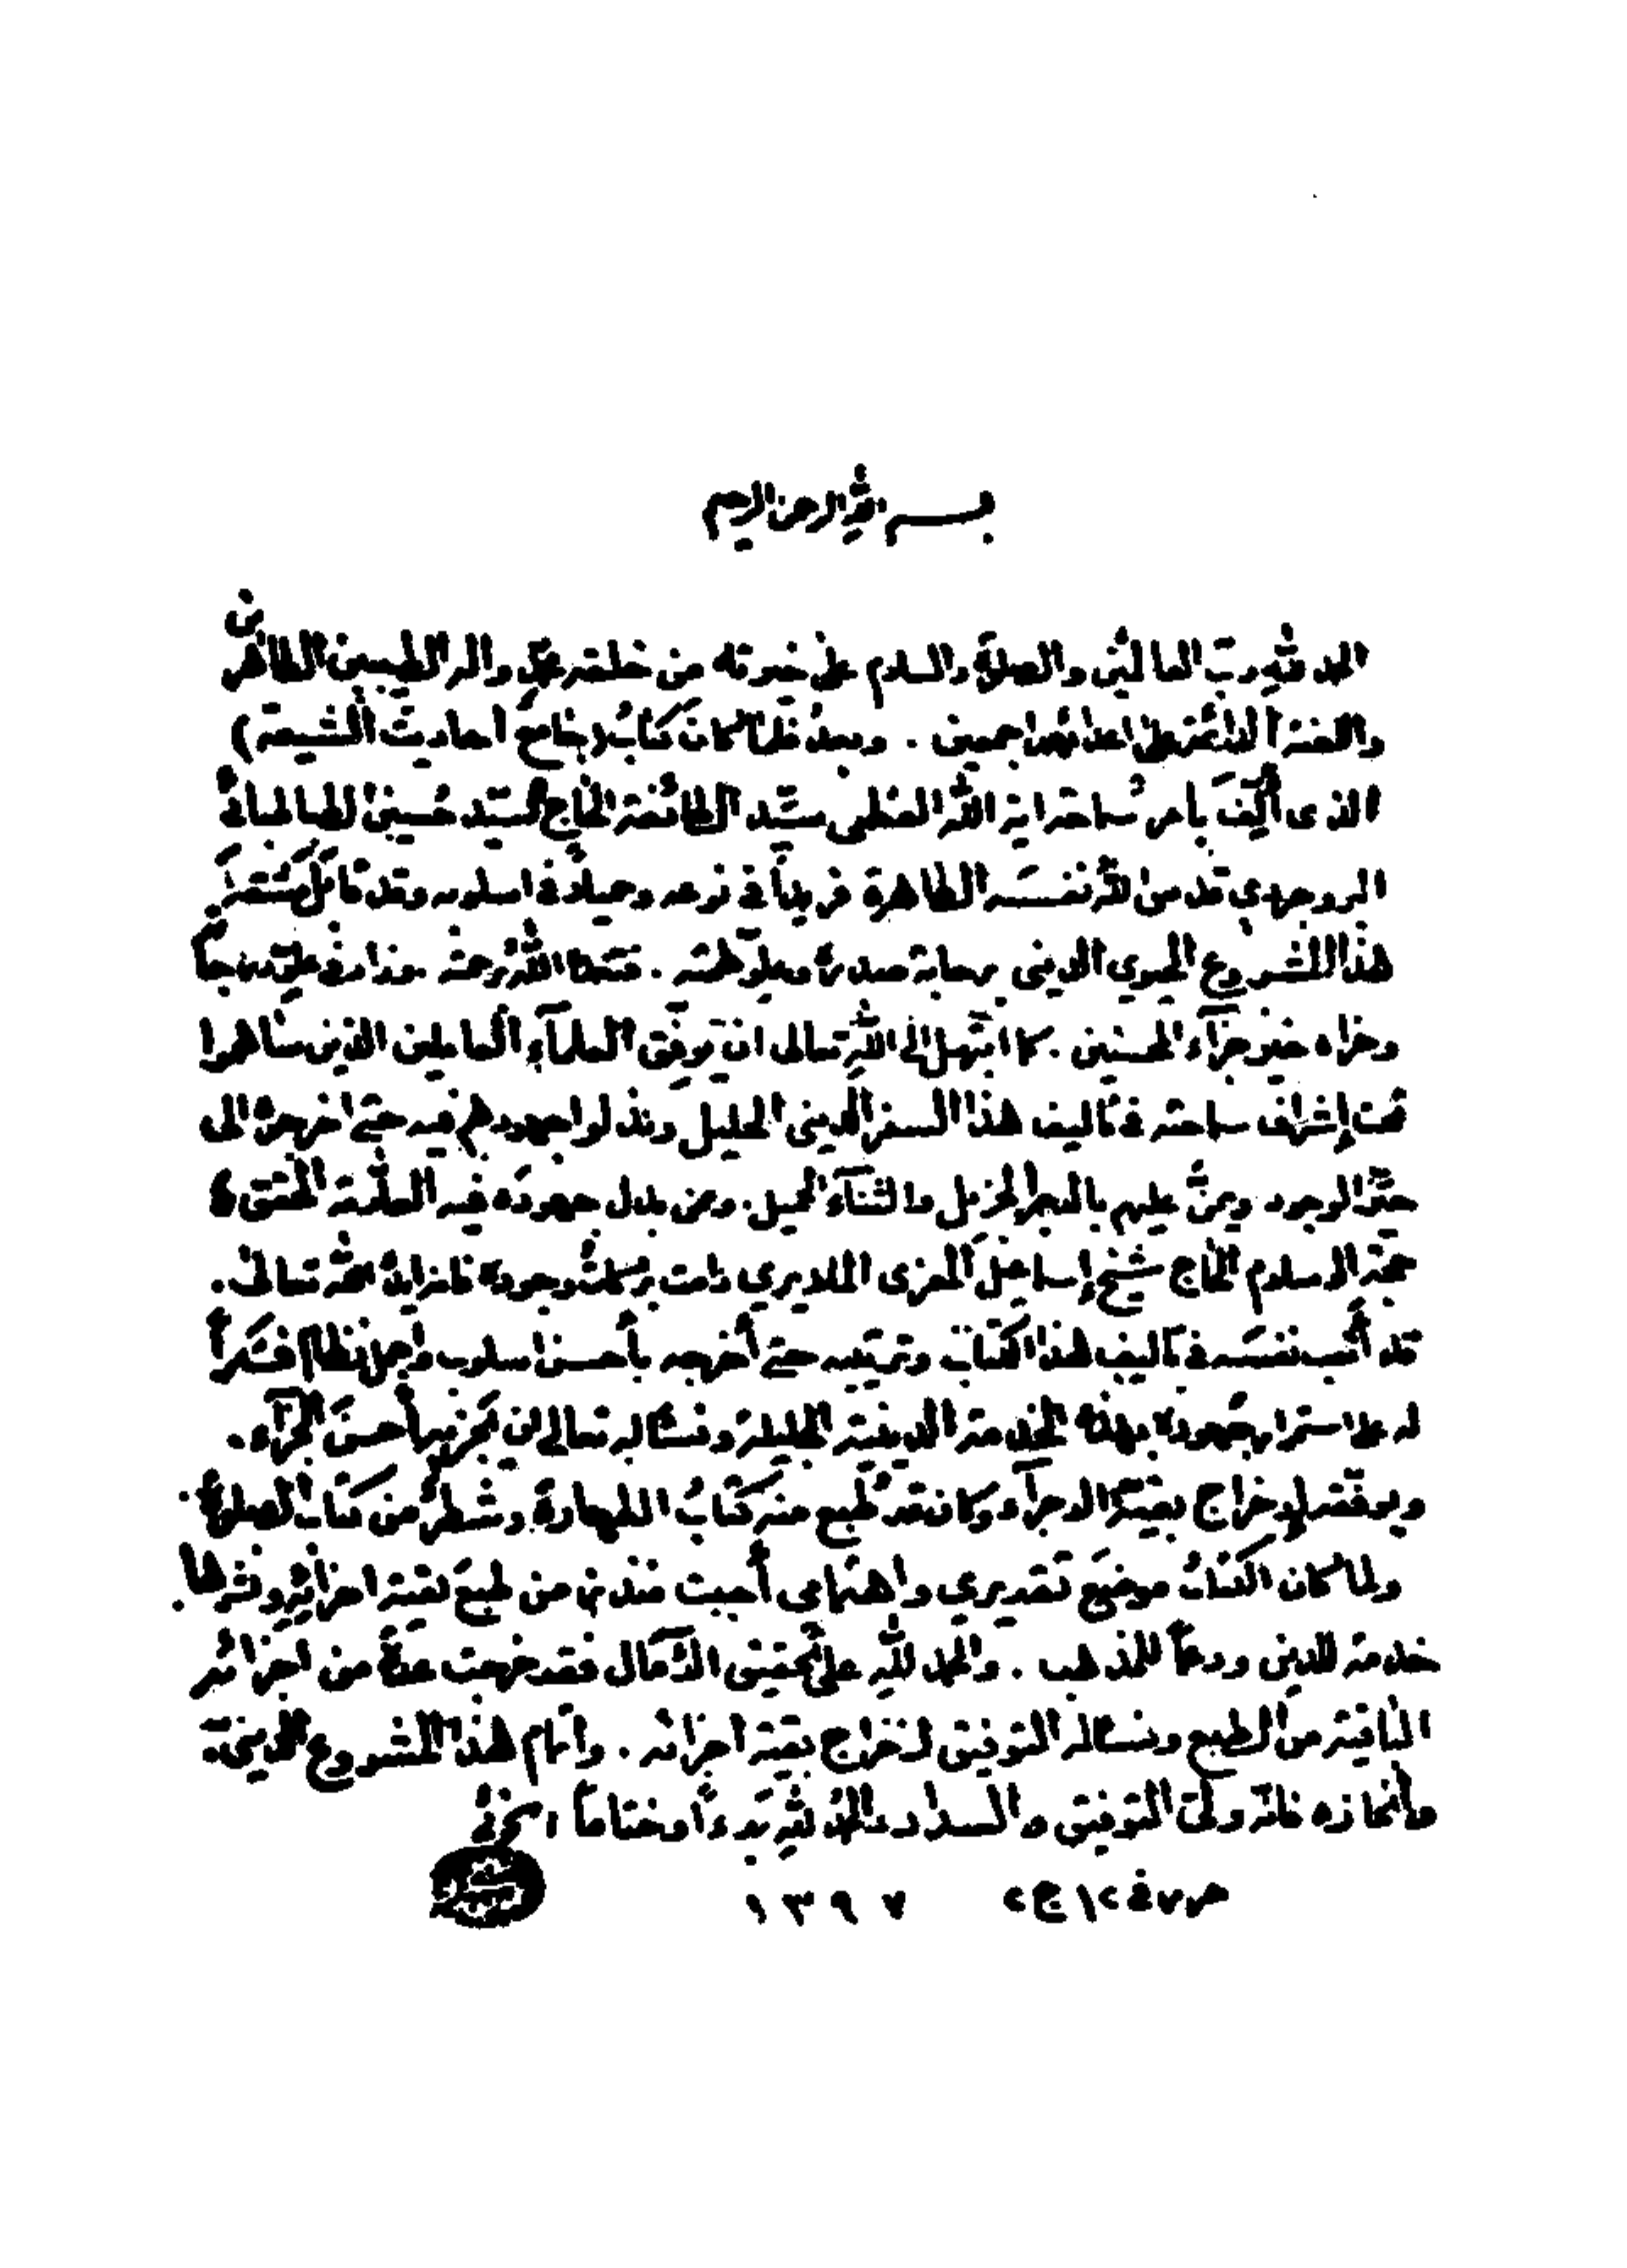 بسم الله الرحمن الرحيم
الحمد لله رب العالمين والصلوة والسلام على خيرته من خلقه محمد واله الطيبين الطاهرين
واللعنة الدائمة على اعدائهم اجمعين . وبعد فلما كان كتاب (جامع احاديث الشيعة)
الذى ألف بامر سماحة اية الله العظمى سيد الطائفة الحاج السيد حسين الطباطبائى
البروجردى قدس الله نفسه الطاهرة فريداً في نوعه وحيداً في اسلوبه وقد
هذا المشروع الحيوى الدينى برحابة صدره وعلو همته . فتغمده الله برحمته
وجزاه خير جزاء المحسنين . كما ابتهل الى الله تعالى ان يوفق العلماء العاملين الذين ساهموا
تحت إشراف سماحته في تأليف هذا السفر الدينى الجليل وبذلوا جهودهم فيه حتى اخرجوه الى
حيز الوجود ويمن عليهم بالاجر الجزيل والثناء الجميل . وممن بذل جهوده فيه العلامة المتقى
حجة الاسلام الحاج شيخ إسماعيل المعزى الملايرى دامت بركات وجوده فانه ايده الله تعالى .
قد أتعب نفسه في تأليف هذا الكتاب وترتيبه حتى أخرجه بأحسن اسلوب واجمل نظام فشكراً
له على استمرار جهوده بهذه الخدمة الدينية الجليلة ونسأله تعالى ان يجزيه أحسن الجزاء .
ويوفقه لإخراج بقية الاجزاء وكان قد طبع منه كتاب الطهارة وشطر من كتاب الصلوة
ولما كان الكتاب موضع تقديرى واهتمامى أحببت منذ زمن طبع بقية اجزائه ونشرها
خدمة للدين ودعماً للمذهب . والحمد لله على تحقيق الآمال فقد خرجت عدة من اجزائه
الباقية من الطبع ونسأله التوفيق لاخراج بقية اجزائه . واتمام هذا المشروع الدينى .
وانجازه فانه ولى التوفيق والسداد والحمد لله بدءاً وختاماً
١٣٩٧